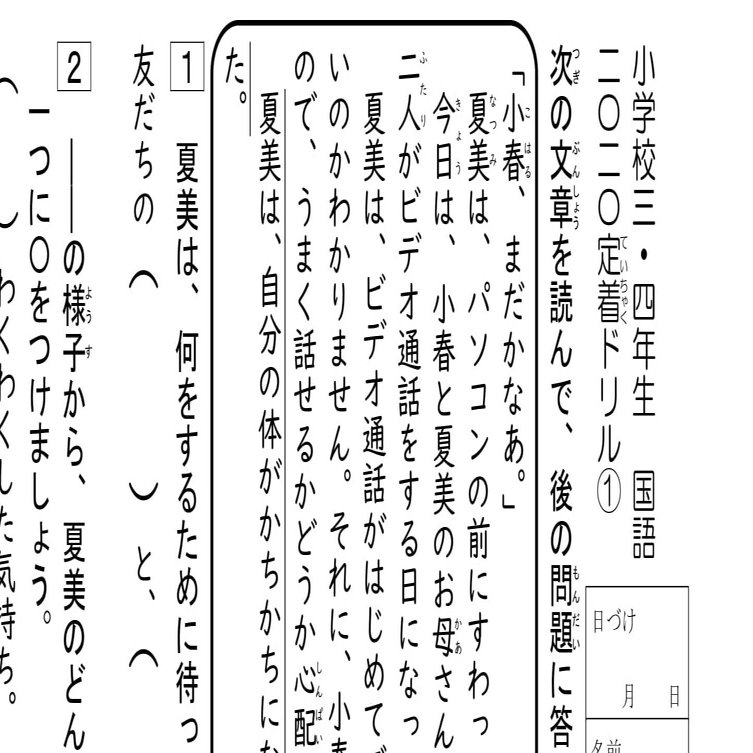 小学校三・四年生　国語
二〇二〇定着ドリル①
日づけ
月　日
名前
次の文章を読んで、後の問題に答
「小春、まだかなあ。」
夏美は、パソコンの前にすわっ
今日は、小春と夏美のお母さん
二人がビデオ通話をする日になっ
夏美は、ビデオ通話がはじめて
いのかわかりません。それに、小
ので、うまく話せるかどうか心配
夏美は、自分の体がかちかちに
た。
1　夏美は、何をするために待っ
友だちの（　　　）と、（
2　――の様子から、夏美のどん
一つに〇をつけましょう。
（　　）わくわくした気持ち。